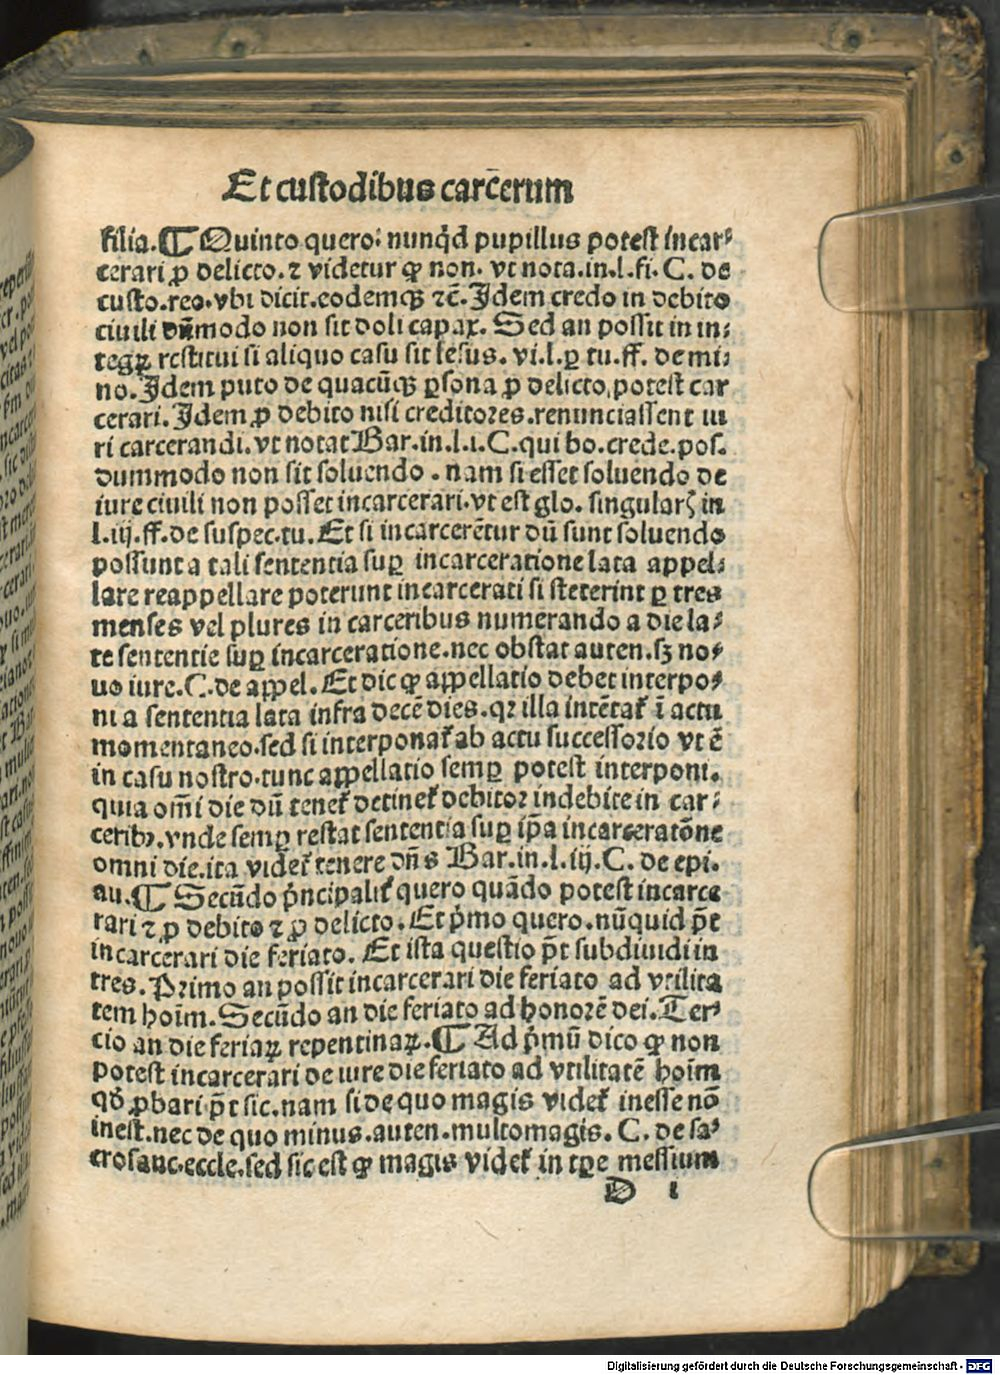 Et custodibus carc̄erum
filia. ¶ Quinto quero: nunq̄d pupillus potest incar⸗
cerari ꝓ delicto. ⁊ videtur ꝙ non. vt nota. in. l. fi. C. de
custo. reo. vbi dicit. eodemqꝫ ⁊c̄. Idem credo in debito
ciuili dūmodo non sit doli capax. Sed an possit in in⸗
tegꝝ restitui si aliquo casu sit lesus. vi. l. ꝑ tu. ff. de mi⸗
no. Idem puto de quacūqꝫ ꝑsona ꝓ delicto, potest car
cerari. Idem ꝓ debito nisi creditores. renunciassent iu
ri carcerandi. vt notat Bar. in. l. i. C. qui bo. crede. pos.
dummodo non sit soluendo. nam si esset soluendo de
iure ciuili non posset incarcerari. vt est glo. singularꝭ in
l. iij. ff. de suspec. tu. Et si incarcerētur dū sunt soluendo
possunt a tali sententia suꝑ incarceratione lata appel⸗
lare reappellare poterunt incarcerati si steterint ꝑ tres
menses vel plures in carceribus numerando a die la⸗
te sententie suꝑ incarceratione. nec obstat auten. sꝫ no⸗
uo iure. C. de appel. Et dic ꝙ appellatio debet interpo⸗
ni a sententia lata infra decē dies. qꝛ illa intētat᷑ ī actu
momentaneo. sed si interponat᷑ ab actu successorio vt ē
in casu nostro. tunc appellatio semꝑ potest interponi.
quia om̄i die dū tenet᷑ detinet᷑ debitor indebite in car⸗
ceribꝰ. vnde semꝑ restat sententia suꝑ ip̄a incarceratōne
omni die. ita videt᷑ tenere dn̄s Bar. in. l. iij. C. de epi.
au. ¶ Secūdo pͥncipalit᷑ quero quādo potest incarce
rari ⁊ ꝓ debito ⁊ ꝓ delicto. Et pͥmo quero. nūquid pt̄
incarcerari die feriato. Et ista questio pt̄ subdiuidi in
tres. Primo an possit incarcerari die feriato ad vtilita
tem hoīm. Secūdo an die feriato ad honorē dei. Ter⸗
cio an die feriaꝝ repentinaꝝ. ¶ Ad pͥmū dico ꝙ non
potest incarcerari de iure die feriato ad vtilitatē hoīm
qd̄ ꝓbari pt̄ sic. nam si de quo magis videt᷑ inesse nō
inest. nec de quo minus. auten. multomagis. C. de sa⸗
crosanc. eccle. sed sic est ꝙ magis videt᷑ in tꝑe messium
D i
Digitalisierung gefördert durch die Deutsche Forschungsgemeinschaft - DFG